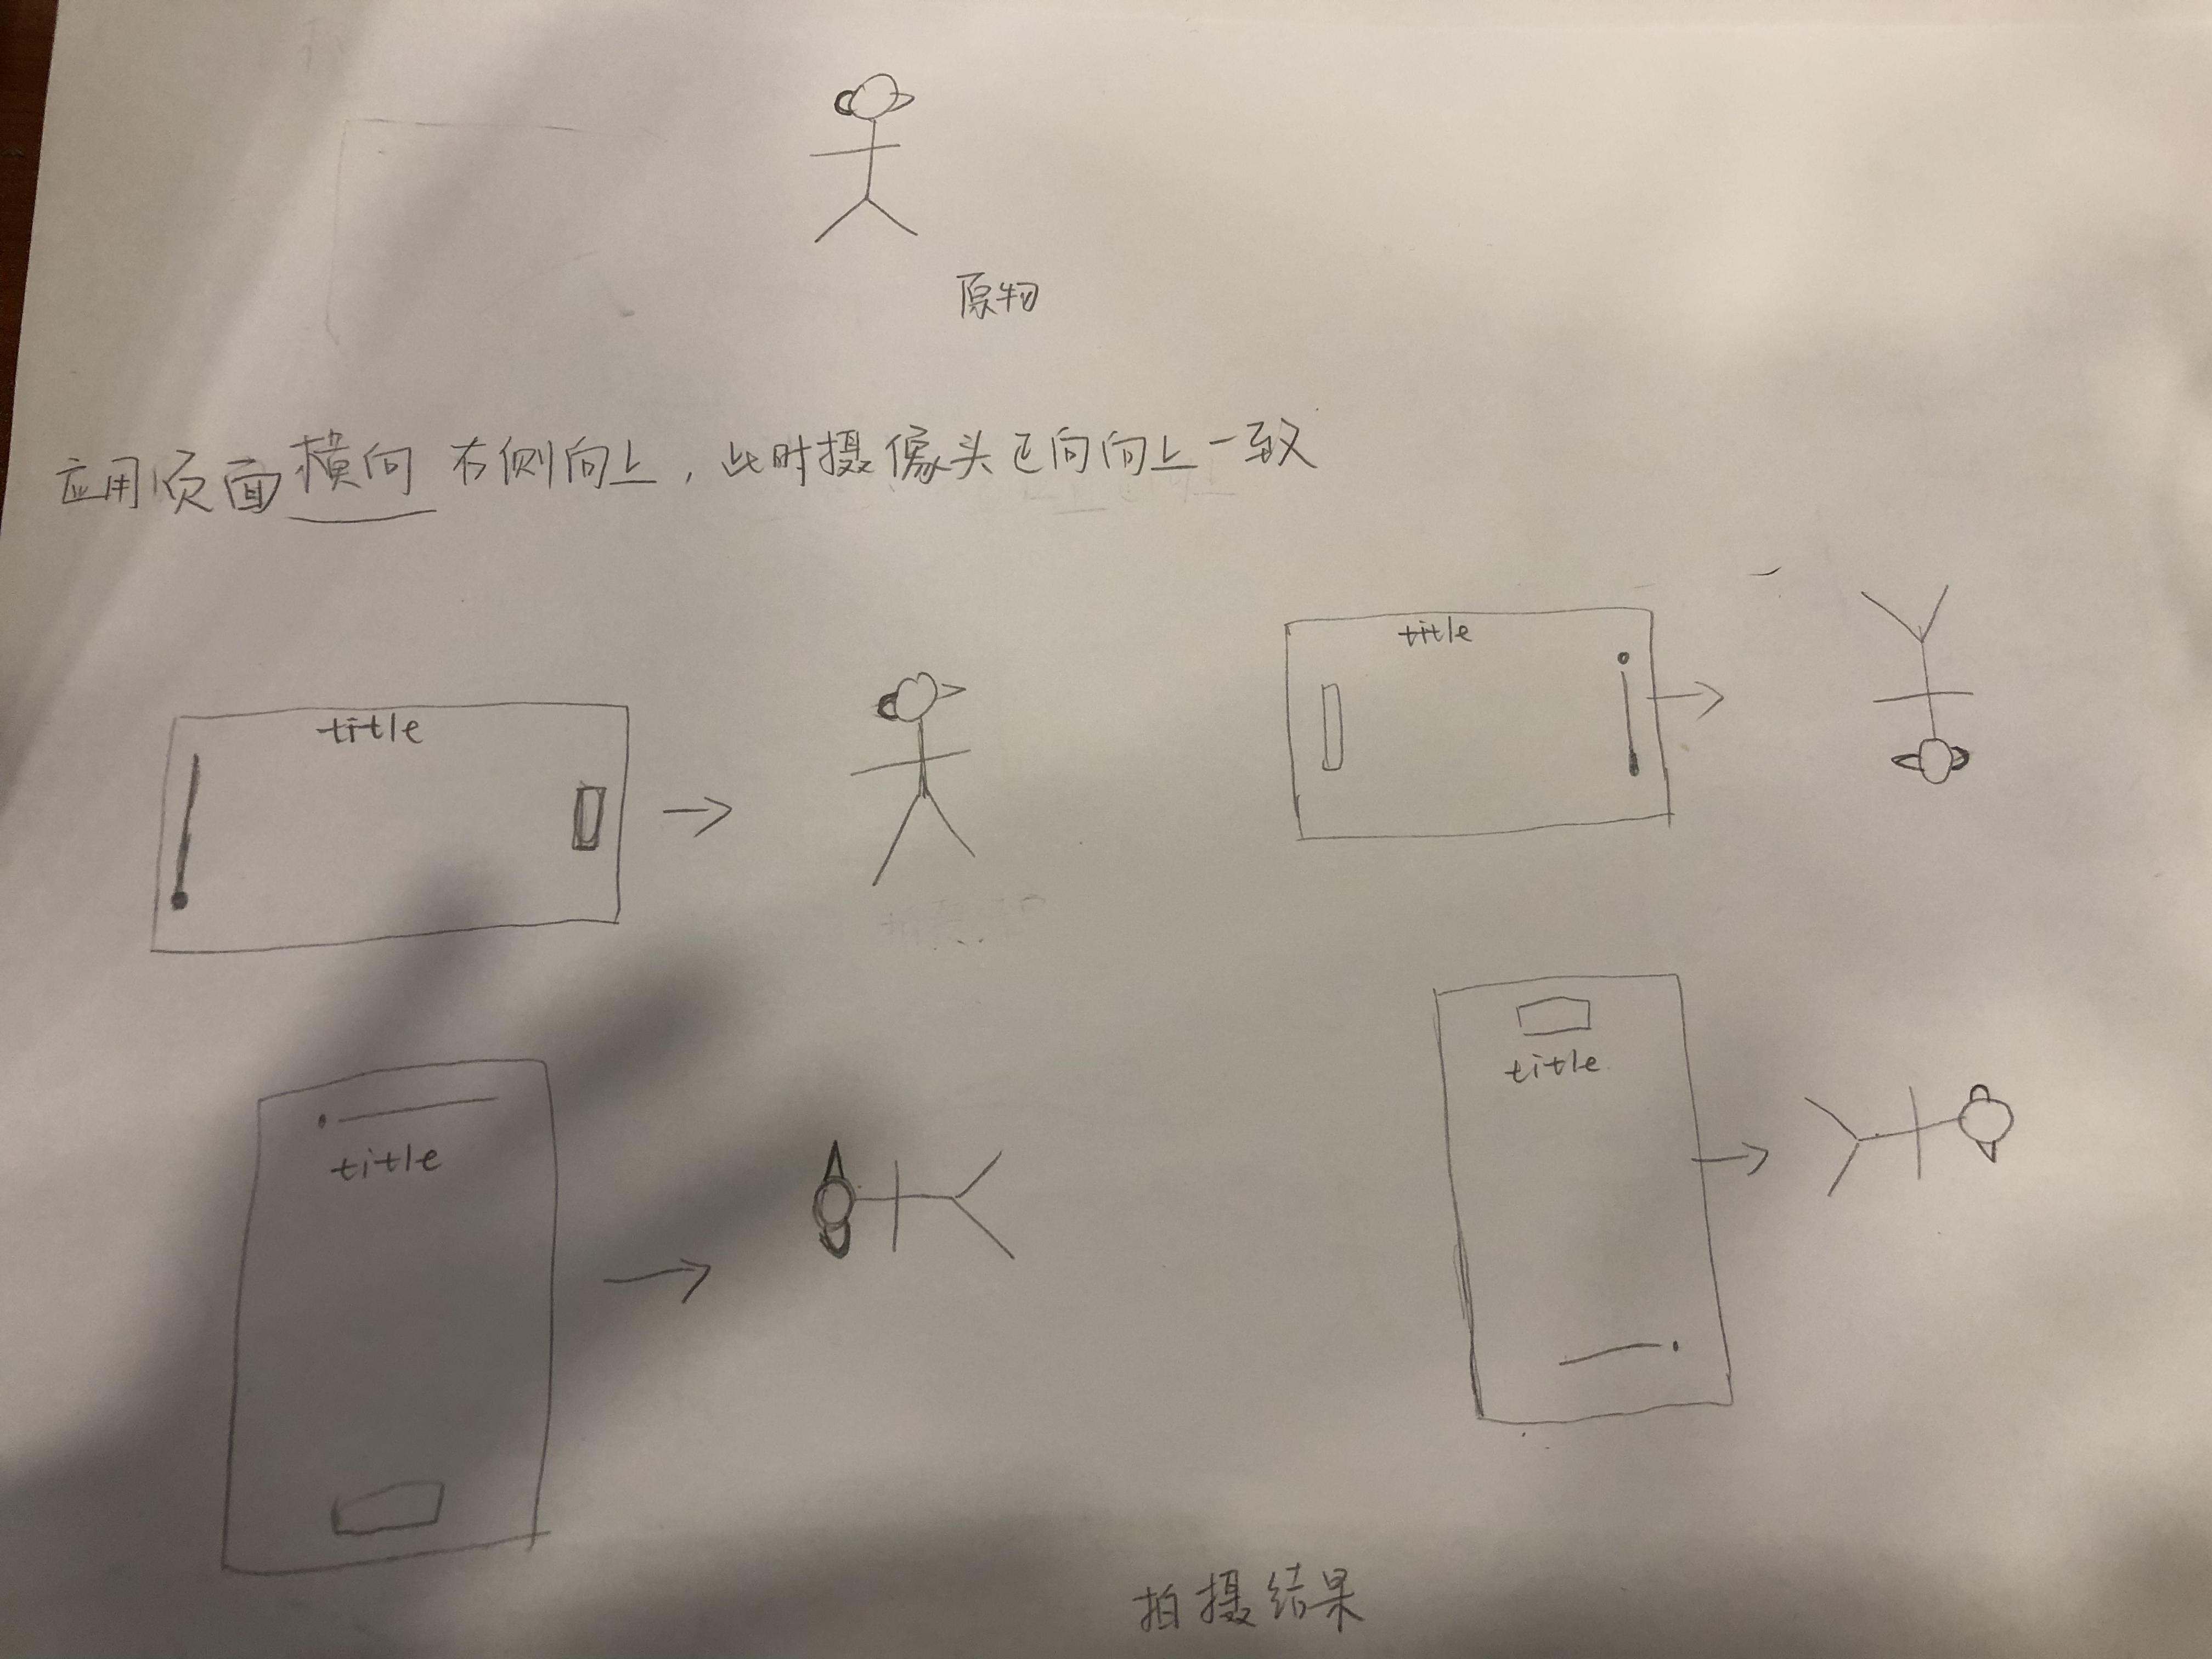 原物
应用页面横向 右侧向上，此时摄像头已向向上一致
title
title
title
title
拍摄结果